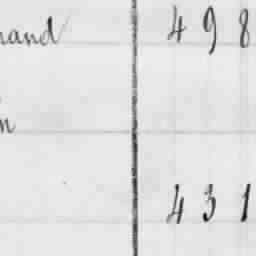 mand 498
n
431